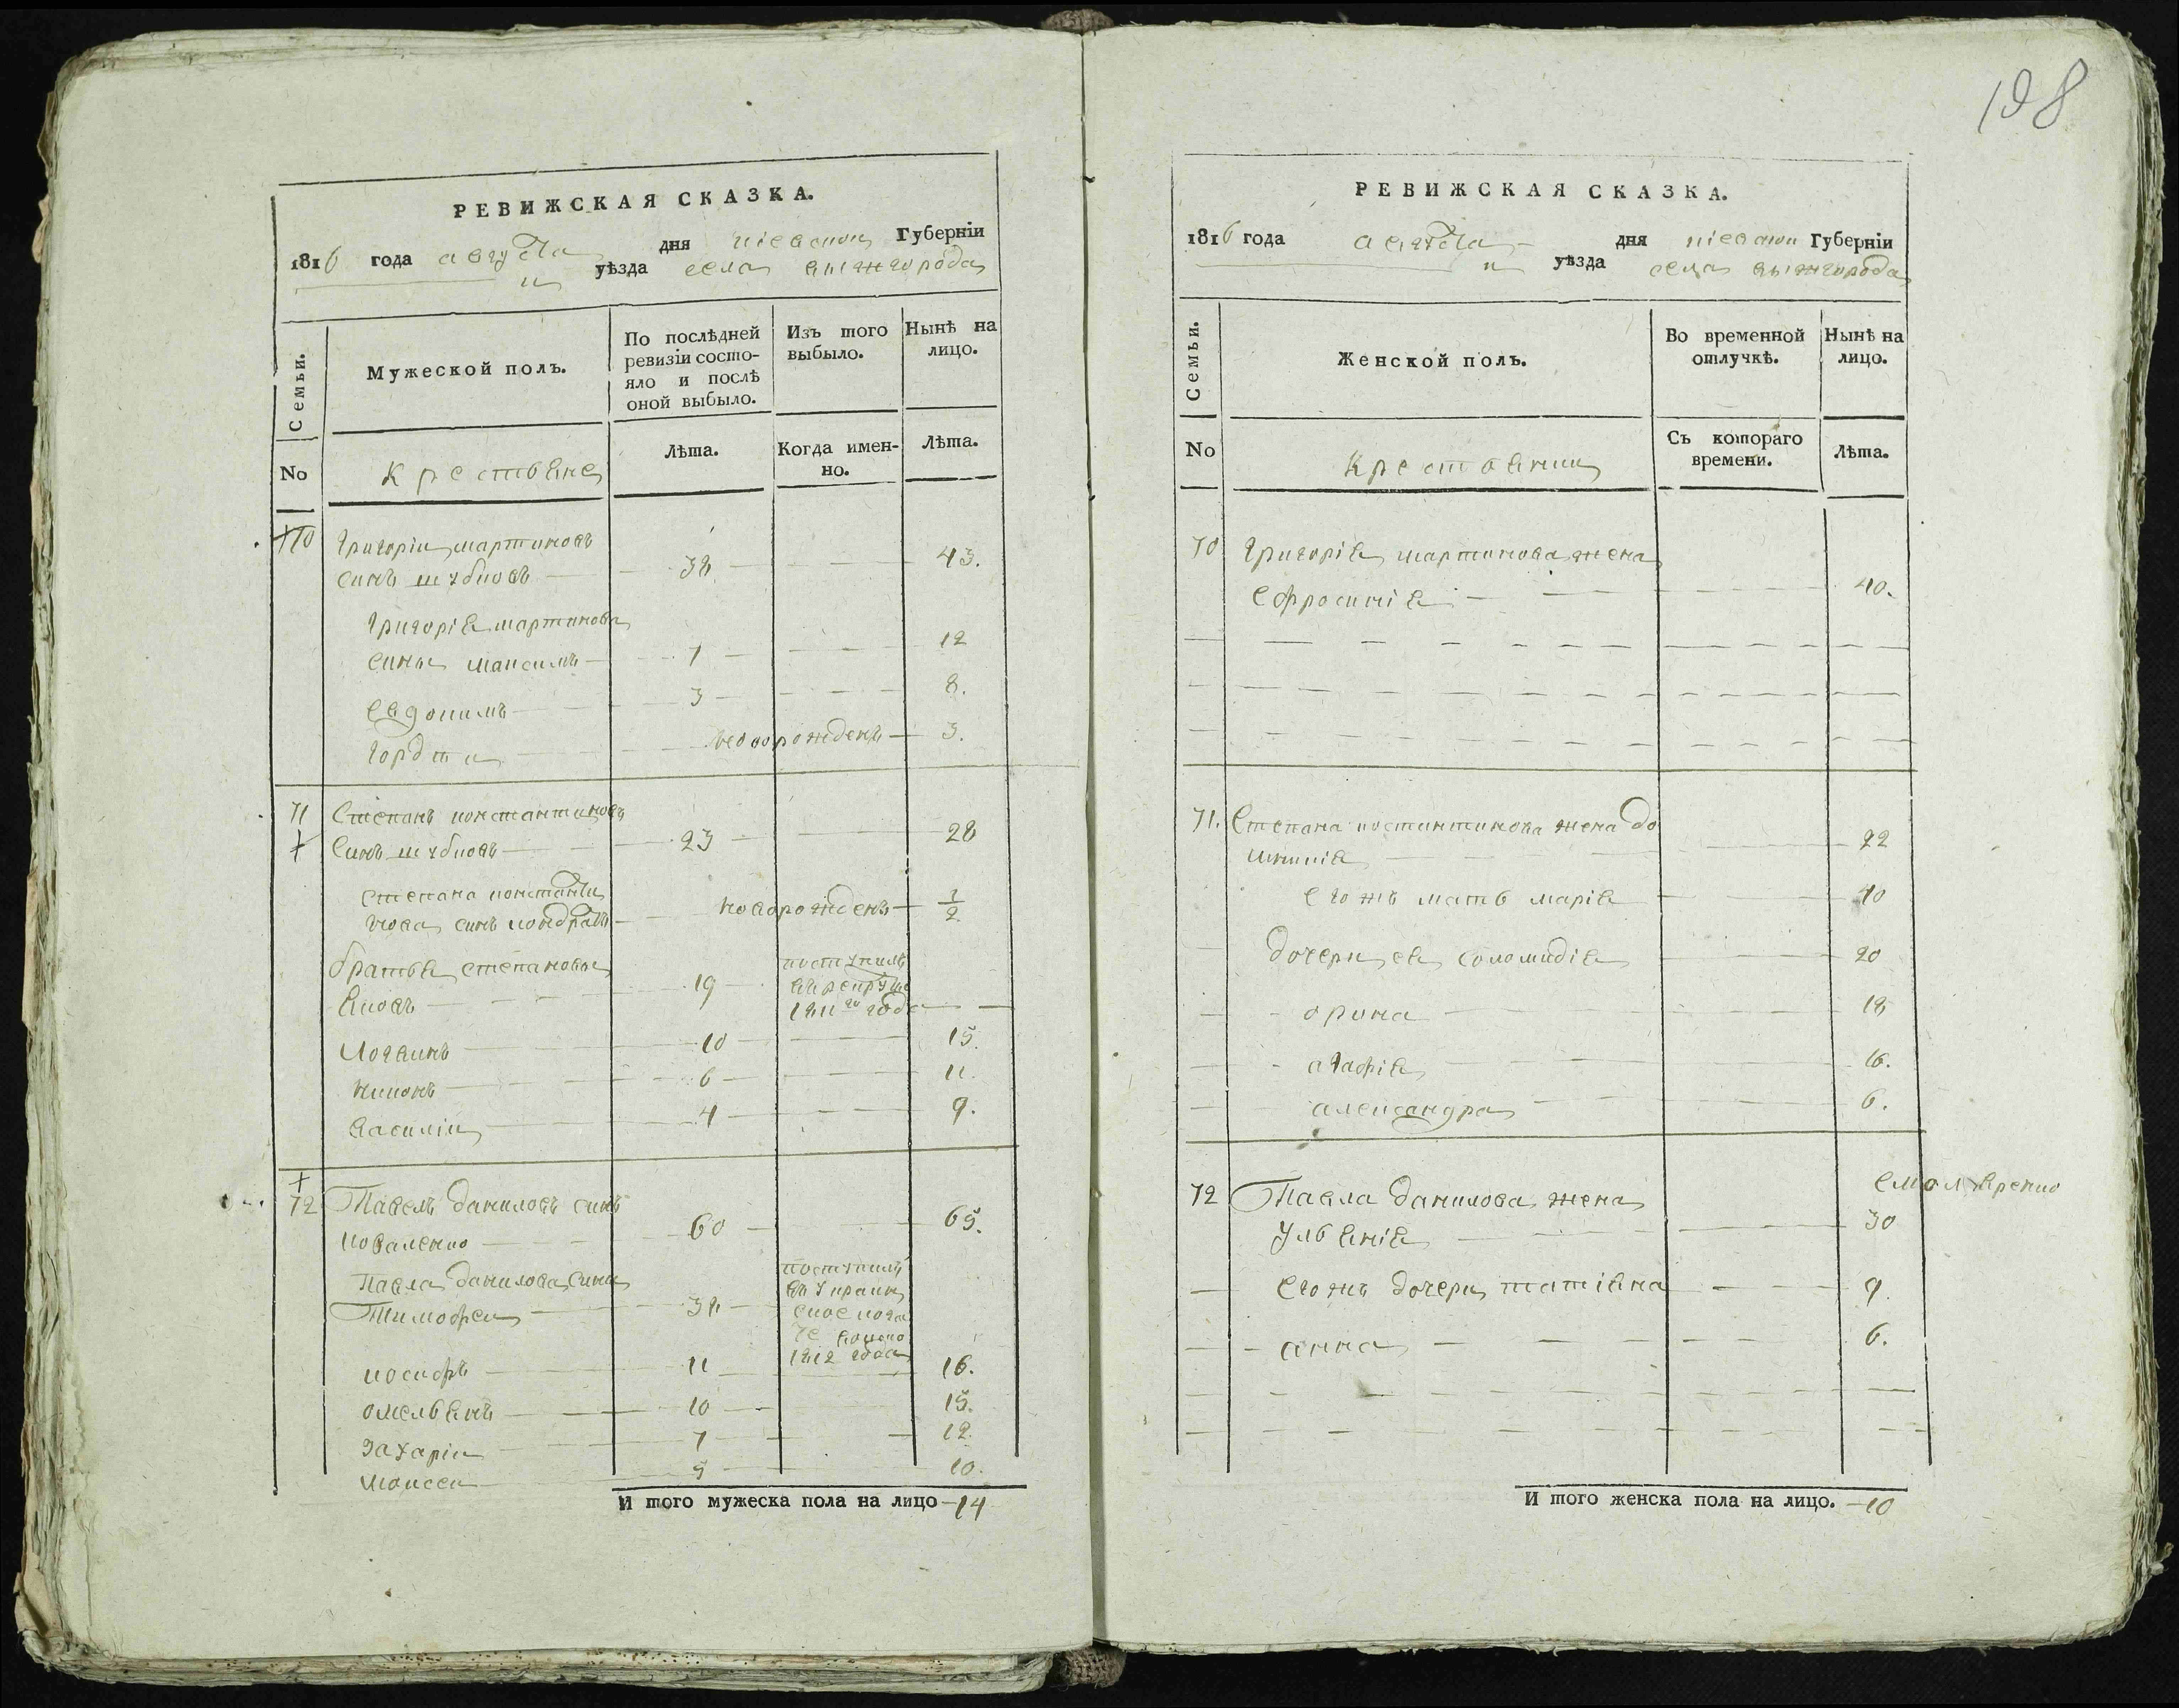 РЕВИЖСКАЯ СКАЗКА.
1816 года августа дня киевской Губерніи
уѣзда села вышгорода
Семьи.
Мужеской полъ.
По послѣдней ревизіи состояло и послѣ оной выбыло.
Изъ того выбыло.
Нынѣ на лицо.
No
крестьяне
Лѣта.
Когда именно.
Лѣта.
70 Григорій мартиновъ
синъ шубновъ 38 43.
Григорія мартинова
сины максимъ 7 12
евдокимъ 3 8.
гордѣй новорожденъ 3.
71 Степанъ константиновъ
синъ шубновъ 23 28
степана константи
нова синъ кондратъ новорожденъ 1/2
братья степановы
яковъ 19 поступилъ въ рекруты 1811го года
логвинъ 10 15.
никонъ 6 11.
василій 4 9.
72 Павелъ даниловъ синъ
коваленко 60 65.
Павла данилова сины
Тимофей 38 поступилъ въ украинское козаче войско 1812 года
иосифъ 11 16.
омельянъ 10 15.
захарій 7 12.
моисей 5 10.
И того мужеска пола на лицо 14
198
РЕВИЖСКАЯ СКАЗКА.
1816 года августа дня киевской Губерніи
уѣзда села вышгорода
Семьи.
Женской полъ.
Во временной отлучкѣ.
Нынѣ на лицо.
No
крестьянки
Съ котораго времени.
Лѣта.
70 Григорія мартинова жена
ефросинія 40.
71. Степана костантинова жена до
мникія 22
егожъ мать марія 40
дочери ея соломидія 20
орина 18
агафія 16.
александра 6.
72 Павла данилова жена
ульянія 30
егожъ дочери татіяна 9.
анна 6.
И того женска пола на лицо. 10